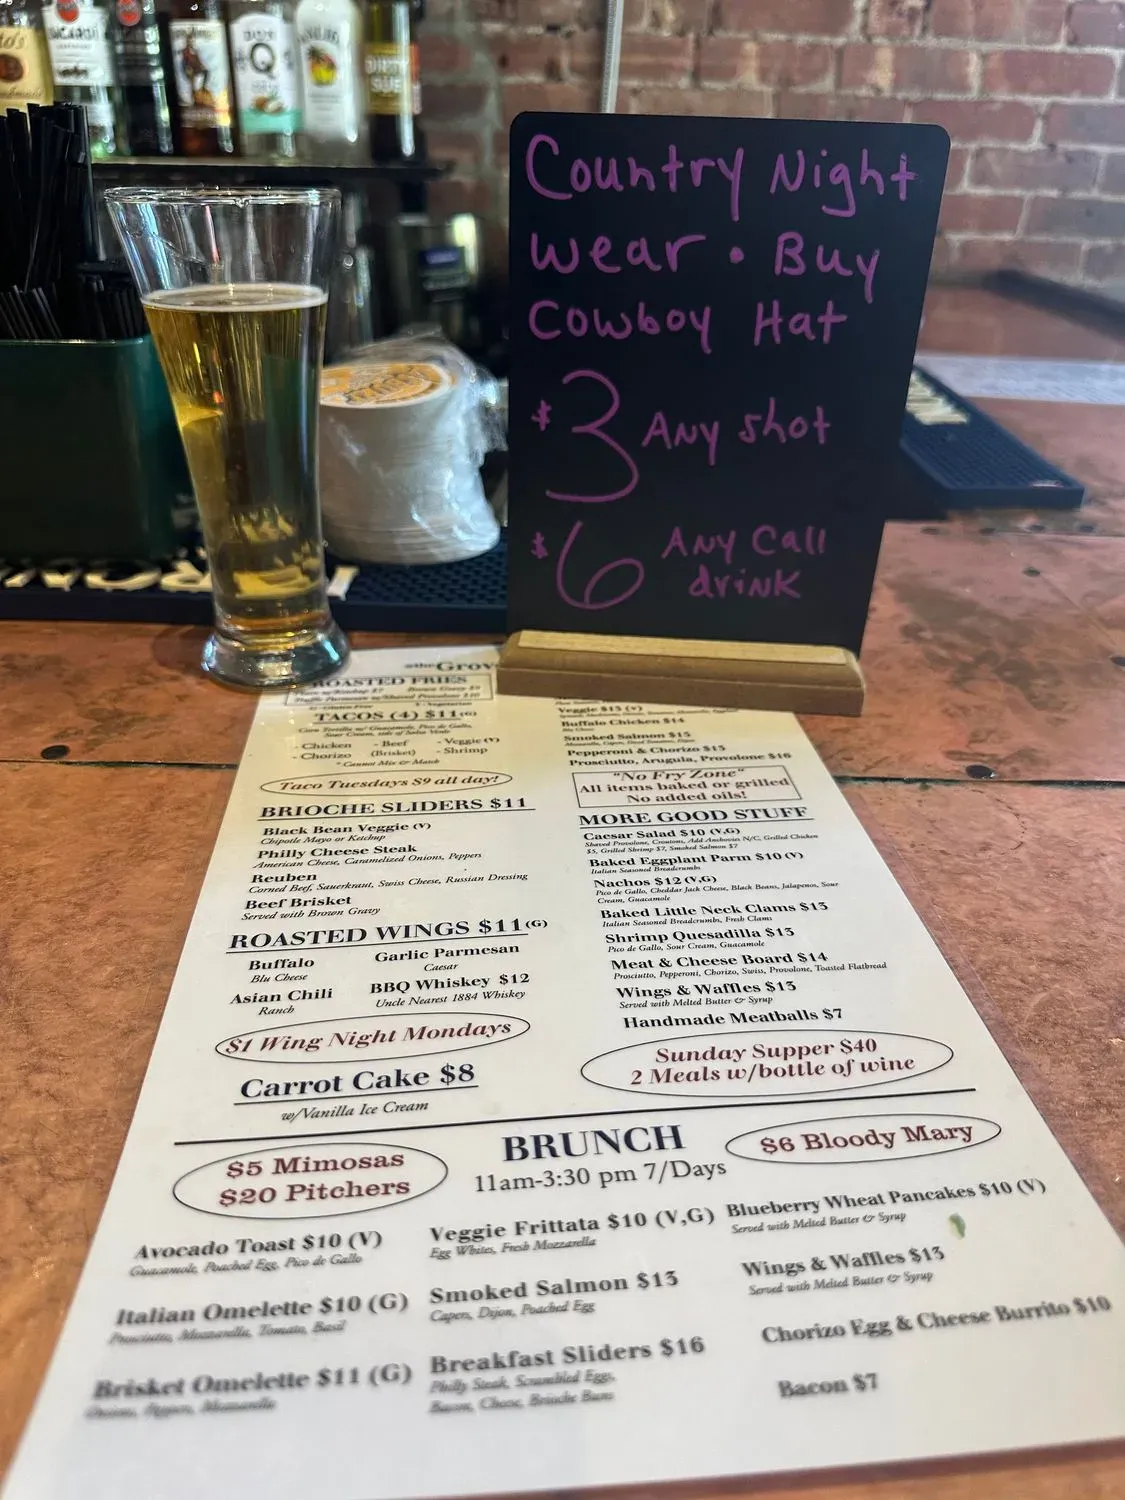 BACARDI
Q
DIRTY
SUE
Country Night
Wear • Buy
Cowboy Hat
$3 Any shot
$6 Any Call
drink
Grov
ROASTED FRIES
TACOS (4) $11(G)
Corn Tortilla w/ Guacamole, Pico de Gallo,
Sour Cream, side of Salsa Verde
- Chicken - Beef - Veggie (V)
- Chorizo (Brisket) - Shrimp
* Cannot Mix & Match
Taco Tuesdays $9 all day!
BRIOCHE SLIDERS $11
Black Bean Veggie (V)
Chipotle Mayo or Ketchup
Philly Cheese Steak
American Cheese, Caramelized Onions, Peppers
Reuben
Corned Beef, Sauerkraut, Swiss Cheese, Russian Dressing
Beef Brisket
Served with Brown Gravy
ROASTED WINGS $11(G)
Buffalo
Blu Cheese
Garlic Parmesan
Caesar
Asian Chili
Ranch
BBQ Whiskey $12
Uncle Nearest 1884 Whiskey
$1 Wing Night Mondays
Carrot Cake $8
w/Vanilla Ice Cream
Veggie $13 (V)
Buffalo Chicken $14
Smoked Salmon $15
Pepperoni & Chorizo $15
Prosciutto, Arugula, Provolone $16
"No Fry Zone"
All items baked or grilled
No added oils!
MORE GOOD STUFF
Caesar Salad $10 (V,G)
Shaved Provolone, Croutons, Add Anchovies N/C, Grilled Chicken
$5, Grilled Shrimp $7, Smoked Salmon $7
Baked Eggplant Parm $10 (V)
Italian Seasoned Breadcrumbs
Nachos $12 (V,G)
Pico de Gallo, Cheddar Jack Cheese, Black Beans, Jalapenos, Sour
Cream, Guacamole
Baked Little Neck Clams $13
Italian Seasoned Breadcrumbs, Fresh Clams
Shrimp Quesadilla $13
Pico de Gallo, Sour Cream, Guacamole
Meat & Cheese Board $14
Prosciutto, Pepperoni, Chorizo, Swiss, Provolone, Toasted Flatbread
Wings & Waffles $13
Served with Melted Butter & Syrup
Handmade Meatballs $7
Sunday Supper $40
2 Meals w/bottle of wine
BRUNCH
11am-3:30 pm 7/Days
$5 Mimosas
$20 Pitchers
$6 Bloody Mary
Avocado Toast $10 (V)
Guacamole, Poached Egg, Pico de Gallo
Italian Omelette $10 (G)
Prosciutto, Mozzarella, Tomato, Basil
Brisket Omelette $11 (G)
Onions, Peppers, Mozzarella
Veggie Frittata $10 (V,G)
Egg Whites, Fresh Mozzarella
Smoked Salmon $13
Capers, Dijon, Poached Egg
Breakfast Sliders $16
Philly Steak, Scrambled Eggs,
Bacon, Cheese, Brioche Buns
Blueberry Wheat Pancakes $10 (V)
Served with Melted Butter & Syrup
Wings & Waffles $13
Served with Melted Butter & Syrup
Chorizo Egg & Cheese Burrito $10
Bacon $7